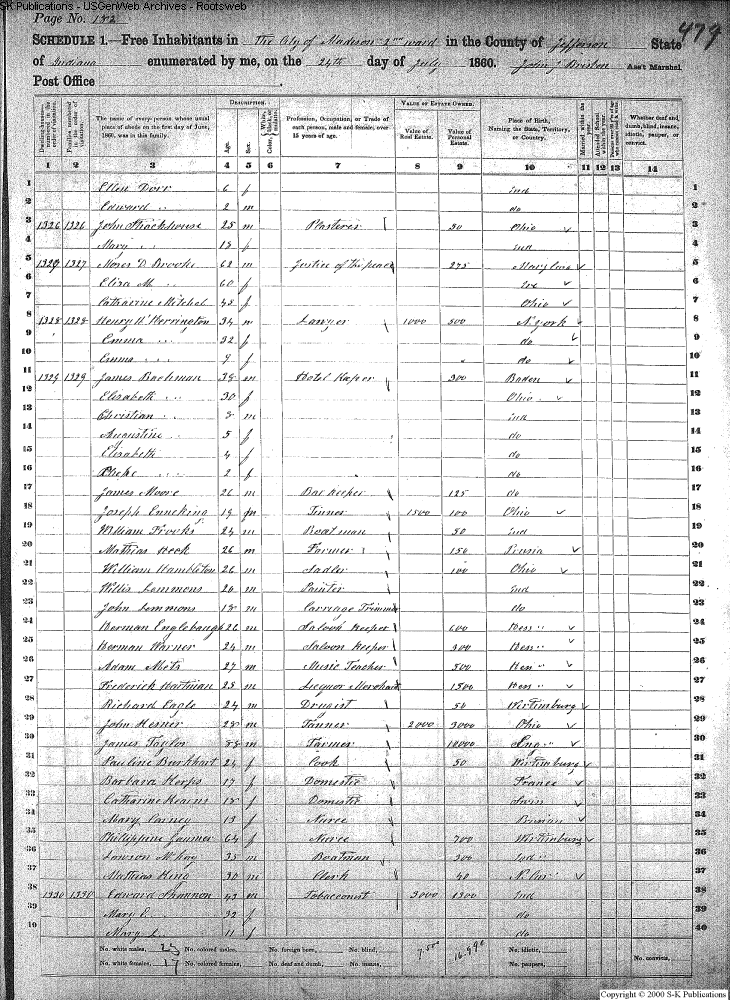 S-K Publications - USGenWeb Archives - Rootsweb
Page No. 182
479
SCHEDULE 1.—Free Inhabitants in The City of Madison 2nd ward in the County of Jefferson State
of Indiana enumerated by me, on the 24th day of July 1860. John J Ass't Marshal.
Post Office
DESCRIPTION. VALUE OF ESTATE OWNED.
Dwelling-houses numbered in the order of visitation. Families numbered in the order of visitation. The name of every person whose usual place of abode on the first day of June, 1860, was in this family. Age. Sex. Color, White, black, or mulatto. Profession, Occupation, or Trade of each person, male and female, over 15 years of age. Value of Real Estate. Value of Personal Estate. Place of Birth, Naming the State, Territory, or Country. Married within the year. Attended School within the year. Whether deaf and dumb, blind, insane, idiotic, pauper, or convict.
1 2 3 4 5 6 7 8 9 10 11 12 13 14
1 Ellen Dorr 6 f Ind 1
2 Edward " 2 m do 2
3 1326 1326 John Stackhouse 25 m Plasterer 50 Ohio 3
4 Mary " 18 f Ind 4
5 1327 1327 Moses D Brooke 62 m Justice of the peace 275 Maryland 5
6 Eliza M " 60 f Ire 6
7 Catharine Mitchel 48 f Ohio 7
8 1328 1328 Henry W Herrington 34 m Lawyer 1000 500 N York 8
9 Emma " 32 f do 9
10 Emma " 9 f do 10
11 1329 1329 James Bachman 38 m Hotel Keeper 300 Baden 11
12 Elisabeth " 30 f Ohio 12
13 Christian " 8 m Ind 13
14 Augustine " 5 f do 14
15 Elisabeth 4 f do 15
16 2 f do 16
17 James Moore 26 m Bar Keeper 125 do 17
18 Joseph Enneking 19 m Tinner 1500 100 Ohio 18
19 William Frooks 24 m Boatman 50 Ind 19
20 Mathias Heck 26 m Farmer 150 Prusia 20
21 William Hambleton 26 m Sadler 100 Ohio 21
22 Willis Lemmons 20 m Painter Ind 22
23 John Lemmons 18 m Carriage Trimmer do 23
24 Herman Englebaugh 26 m Saloon Keeper 600 Hess " 24
25 Herman Warner 24 m Saloon Keeper 300 Hess " 25
26 Adam Metz 27 m Music Teacher 500 Hess " 26
27 Frederick Hartman 28 m Liquor Merchant 1500 Hess " 27
28 Richard Eagle 24 m Drugist 50 Wirtimburg 28
29 John Hesner 28 m Tanner 2000 3000 Ohio 29
30 James Taylor 58 m Farmer 10000 Eng " 30
31 Pauline Burkhart 24 f Cook 50 Wirtimburg 31
32 Barbara Herps 17 f Domestic France 32
33 Catharine Kearns 18 f Domestic Swiss 33
34 Mary Carney 13 f Nurce 34
35 Philippine Jaumer 64 f Nurce 700 Wirtimburg 35
36 Lawson McKay 35 m Boatman 300 Ind " 36
37 Matthias King 30 m Clerk 40 N. Car " 37
38 1330 1330 Edward Shannon 43 m Tobacconist 3000 1300 Ind 38
39 Mary E " 32 f do 39
40 Mary L " 11 f do 40
No. white males, 23 No. colored males, No. foreign born, No. blind, 7.500 16.990 No. idiotic, No. convicts,
No. white females, 17 No. colored females, No. deaf and dumb, No. insane, No. paupers,
Copyright © 2000 S-K Publications